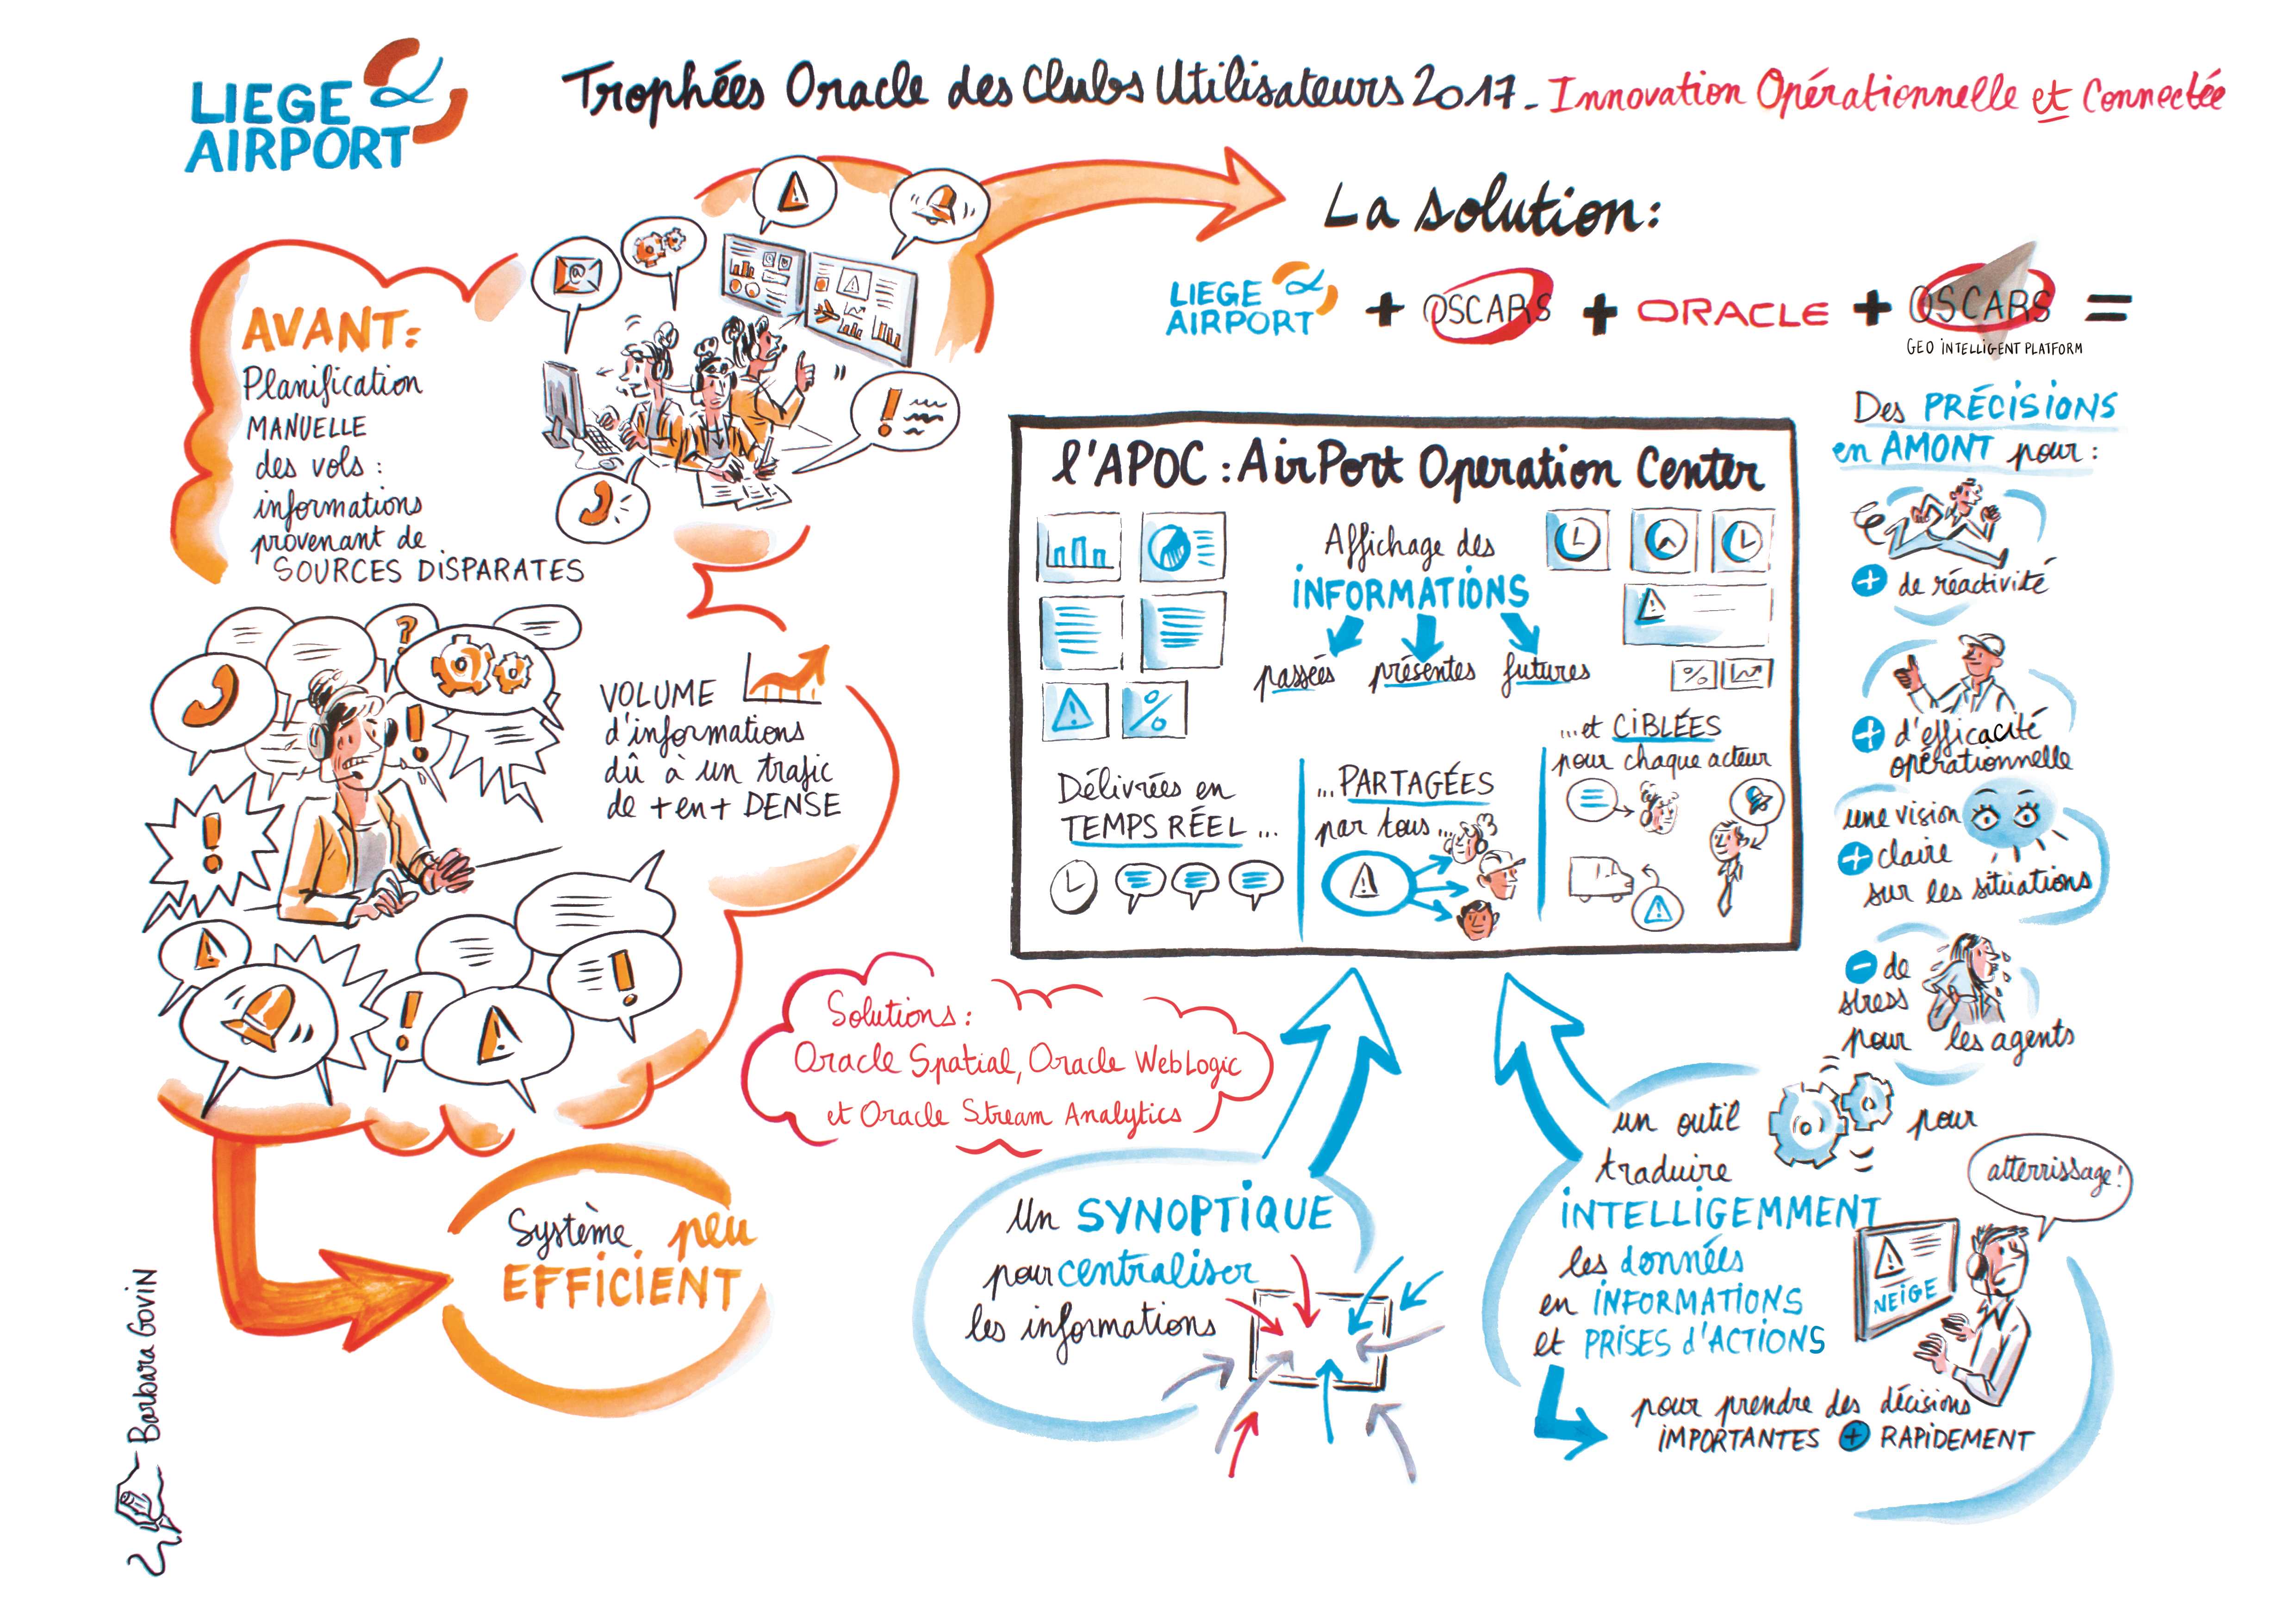 LIEGE
AIRPORT
Trophées Oracle des Clubs Utilisateurs 2017 - Innovation Opérationnelle et Connectée
AVANT:
Planification
MANUELLE
des vols :
informations
provenant de
SOURCES DISPARATES
@
VOLUME
d'informations
dû à un trafic
de + en + DENSE
Système peu
EFFICIENT
La solution:
LIEGE
AIRPORT
+ OSCARS + ORACLE + OSCARS =
GEO INTELLIGENT PLATFORM
l'APOC : AirPort Operation Center
Affichage des
INFORMATIONS
passées présentes futures
%
%
Délivrées en
TEMPS RÉEL ...
... PARTAGÉES
par tous ...
... et CIBLÉES
pour chaque acteur
Des PRÉCISIONS
en AMONT pour :
+ de réactivité
+ d'efficacité
opérationnelle
une vision
+ claire
sur les situations
- de
stress
pour les agents
Solutions :
Oracle Spatial, Oracle WebLogic
et Oracle Stream Analytics
Un SYNOPTIQUE
pour centraliser
les informations
un outil pour
traduire
INTELLIGEMMENT
les données
en INFORMATIONS
et PRISES d'ACTIONS
atterrissage !
NEIGE
pour prendre des décisions
IMPORTANTES + RAPIDEMENT
Barbara Govin